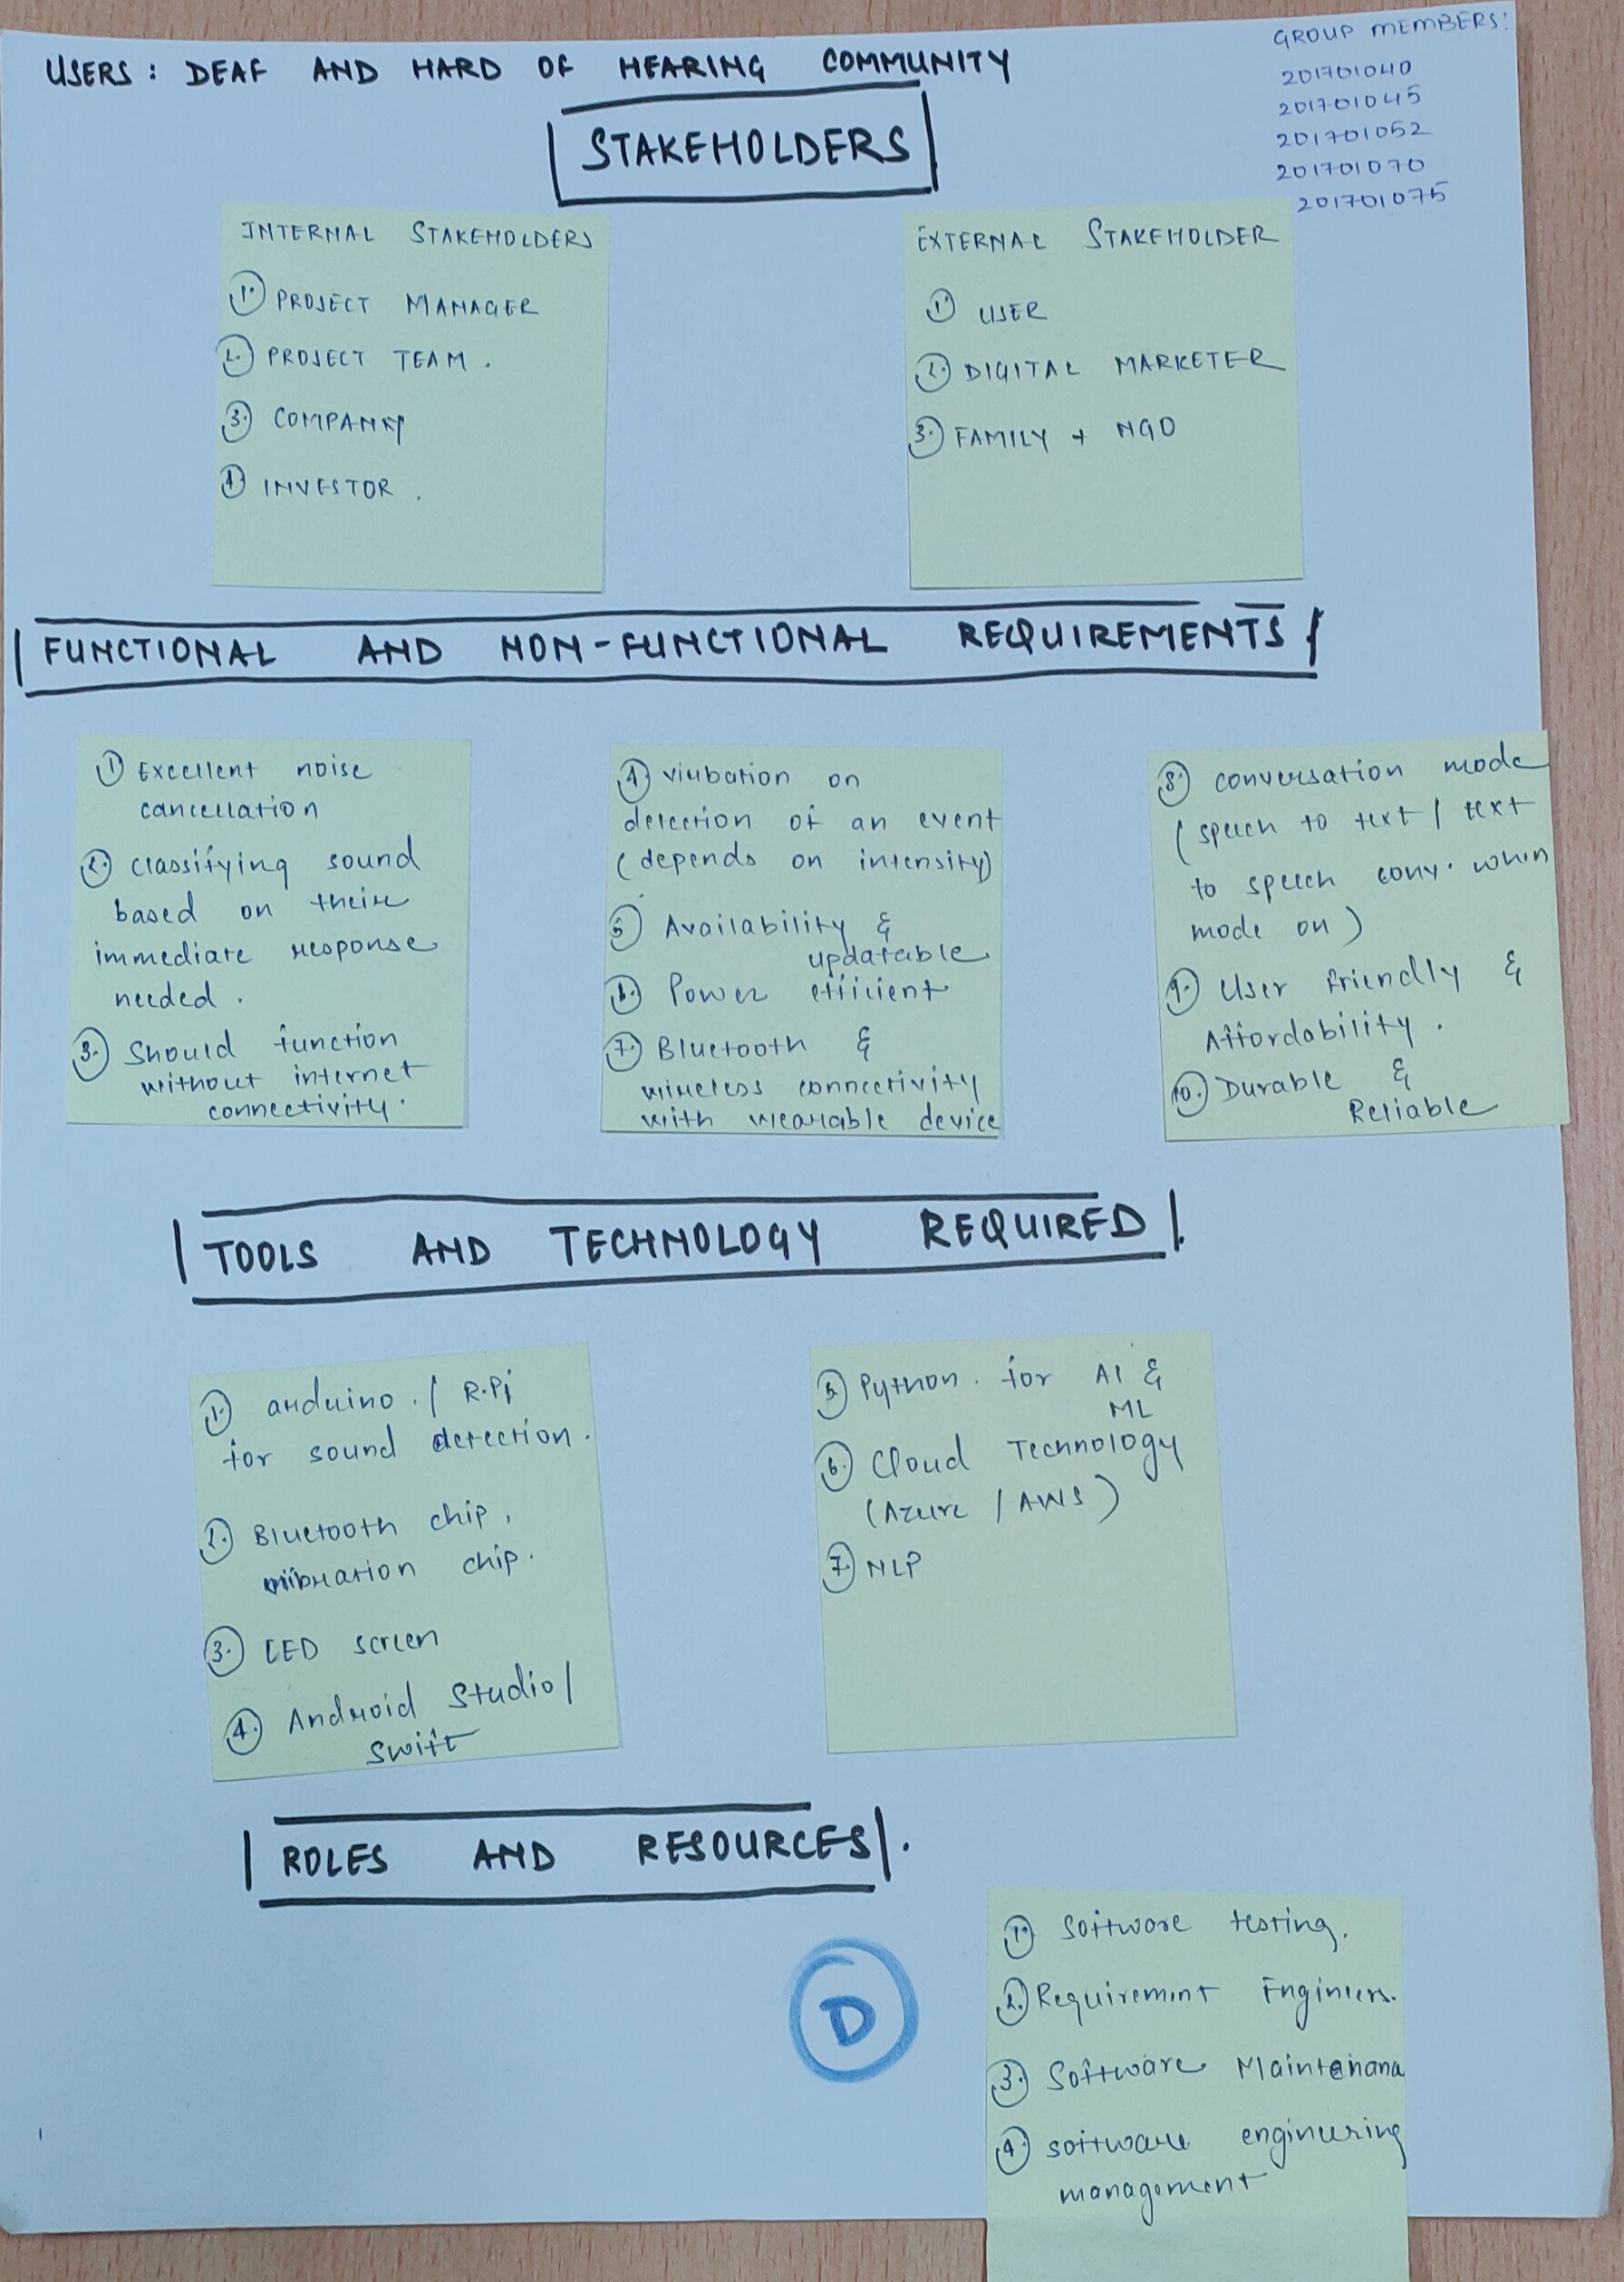 USERS : DEAF AND HARD OF HEARING COMMUNITY
GROUP MEMBERS:
201701040
201701045
201701052
201701070
201701075
STAKEHOLDERS
INTERNAL STAKEHOLDERS
1. PROJECT MANAGER
2. PROJECT TEAM.
3. COMPANY
4. INVESTOR.
EXTERNAL STAKEHOLDER
1. USER
2. DIGITAL MARKETER
3. FAMILY + NGO
FUNCTIONAL AND NON-FUNCTIONAL REQUIREMENTS
1 Excellent noise
cancellation
2. Classifying sound
based on their
immediate response
needed.
3. Should function
without internet
connectivity.
4 vibration on
detection of an event
(depends on intensity)
5 Availability &
updatable
6. Power efficient
7. Bluetooth &
wireless connectivity
with wearable device
8 conversation mode
(speech to text / text
to speech conv. when
mode on)
9. User friendly &
Affordability.
10. Durable &
Reliable
TOOLS AND TECHNOLOGY REQUIRED
1. arduino. / R.Pi
for sound detection.
2. Bluetooth chip,
vibration chip.
3. LED screen
4. Android Studio/
Swift
5. Python. for AI &
ML
6. Cloud Technology
(Azure / AWS)
7. NLP
ROLES AND RESOURCES.
D
1. Software testing.
2. Requirement Engineers.
3. Software Maintenana
4. software engineering
management